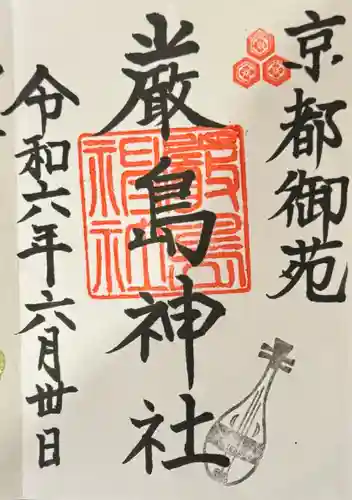 京都御苑
厳島神社
嚴島
神社
令和六年六月卅日